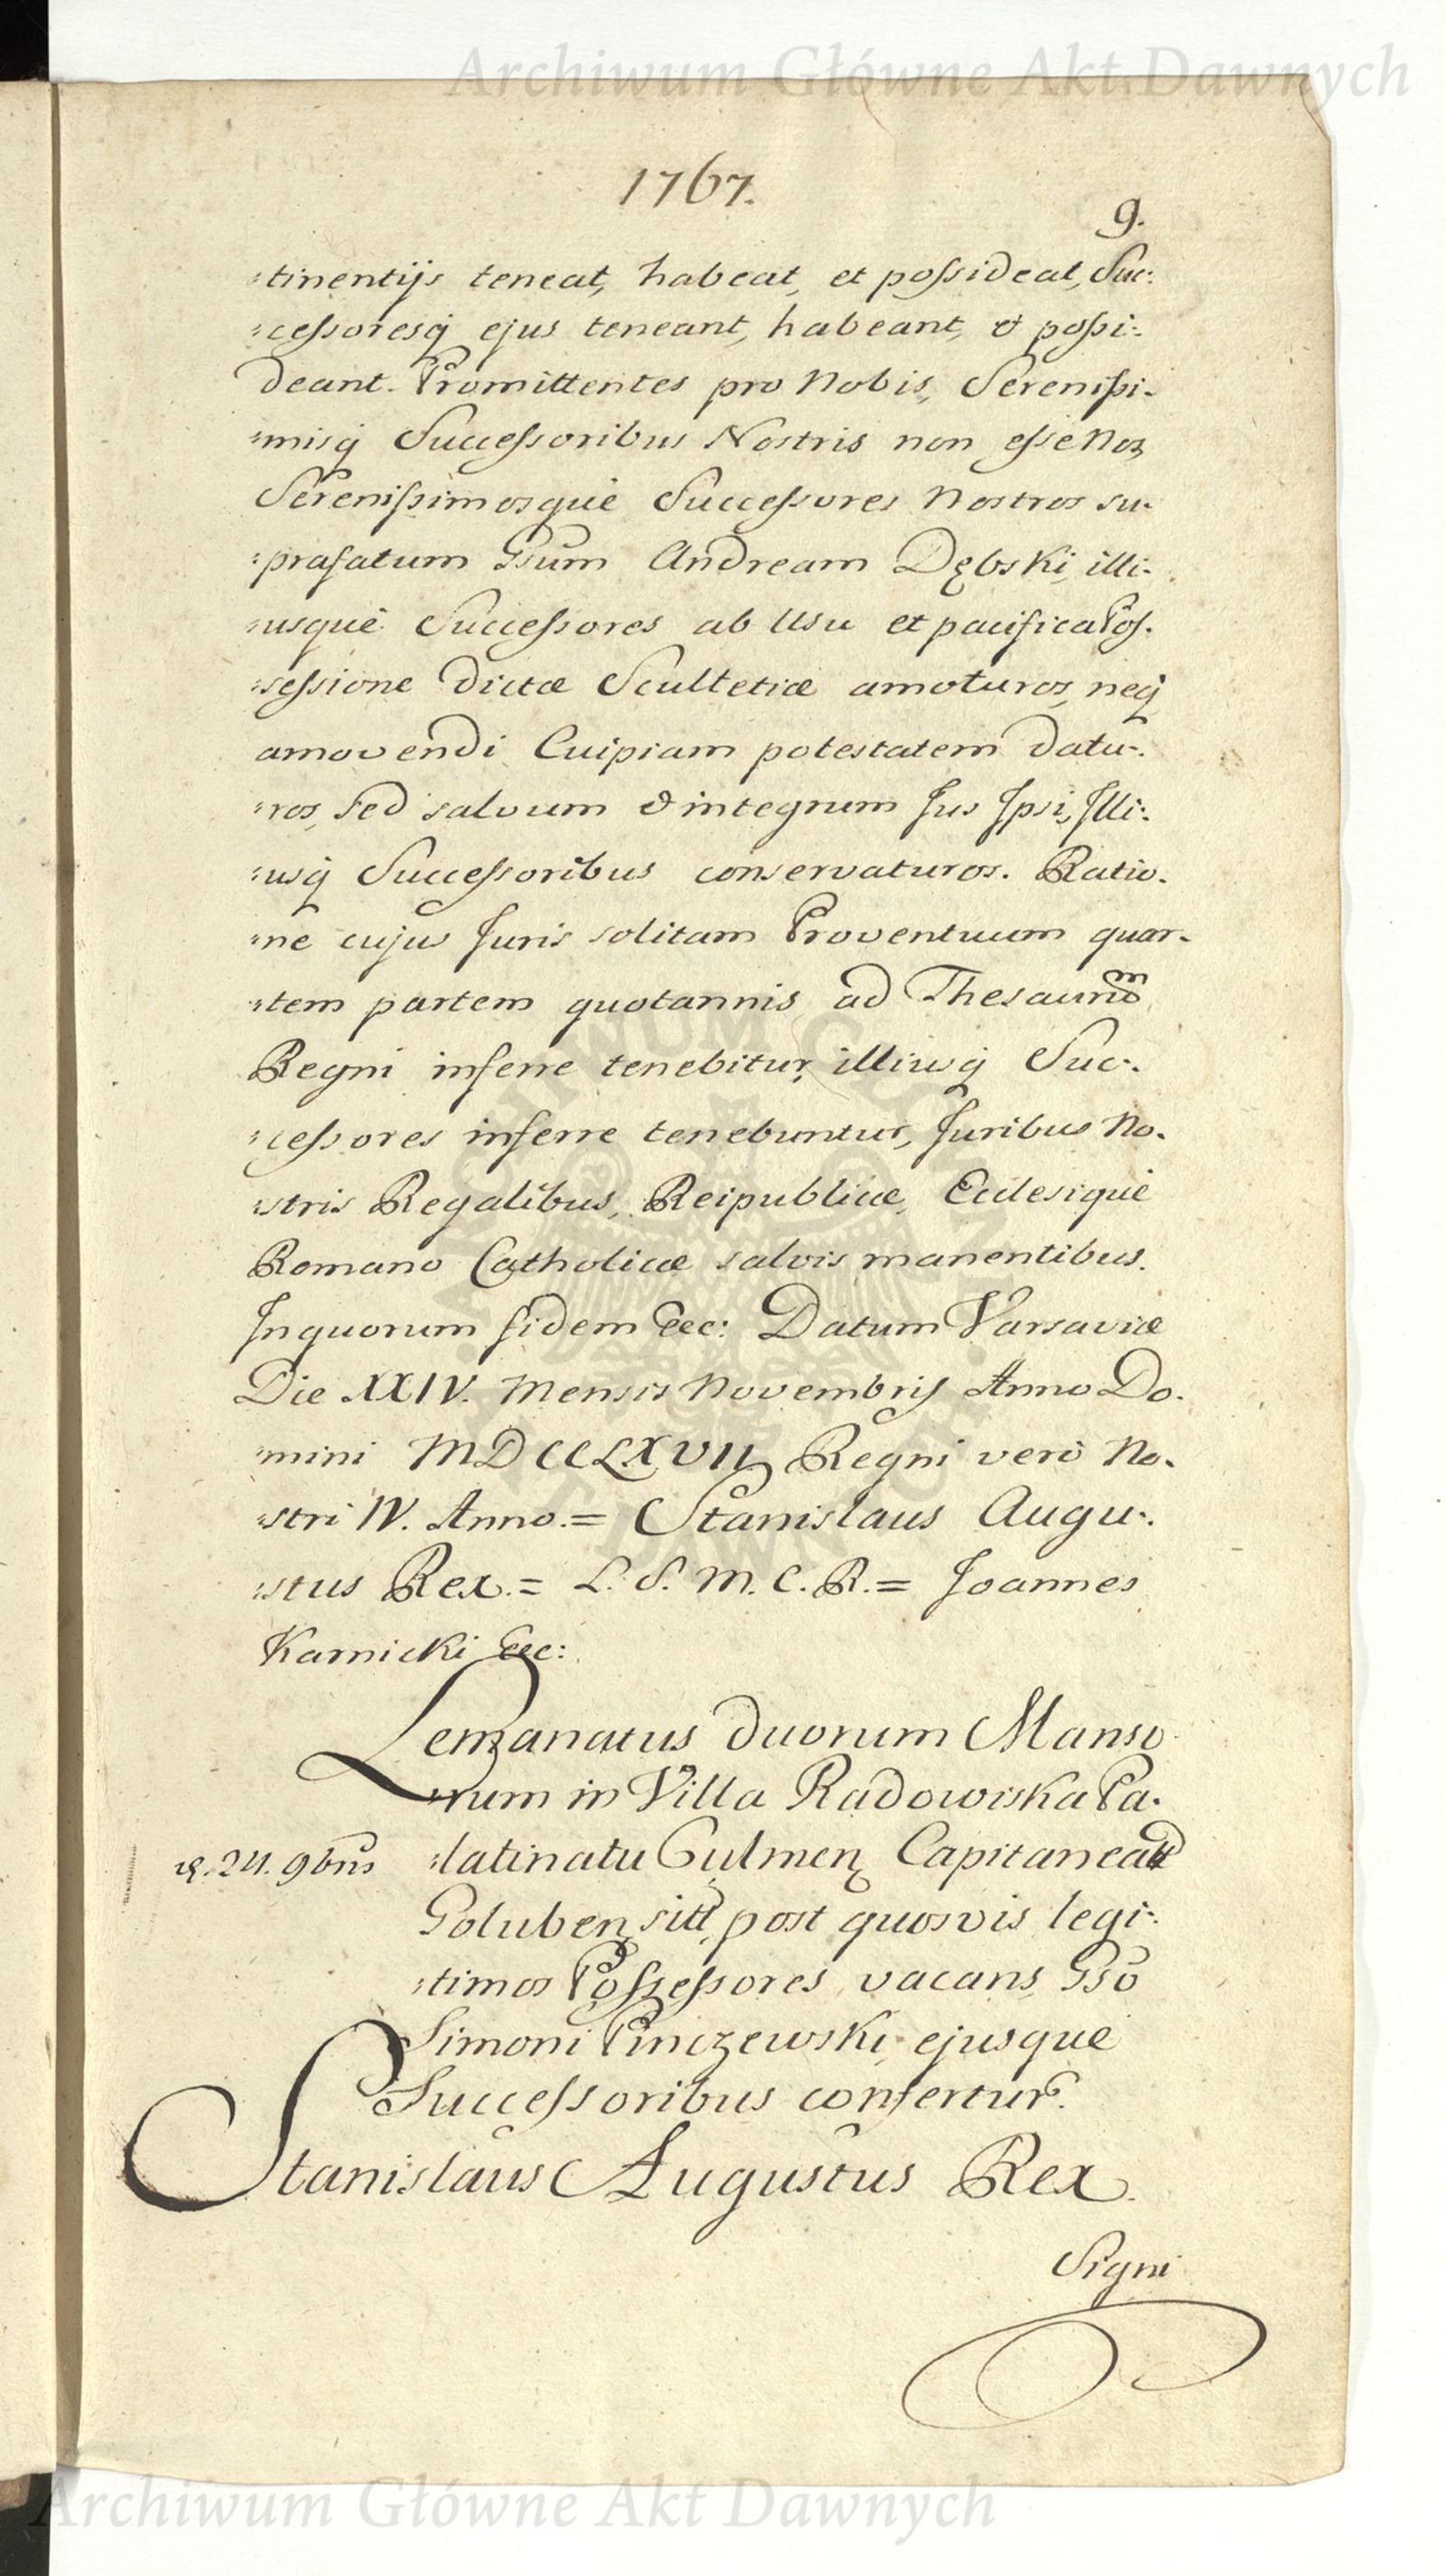 Archiwum Główne Akt Dawnych
1767.
9.
:tinentijs teneat, habeat, et possideat, Suc:
:cessoresq ejus teneant, habeant, & possi:
deant. Promittentes pro Nobis, Serenissi-
:misq Successoribus Nostris non esse Nos,
Serenissimosque Successores Nostros su-
:prafatum Gsum Andream Dębski, illi-
:usque Successores ab Usu et pacifica Pos-
:sessione dictæ Scultetiæ amoturos, neq
amovendi Cuipiam potestatem datu-
:ros, sed salvum & integrum Jus Ipsi, Illi:
:usq Successoribus conservaturos. Ratio-
:ne cujus Juris solitam Proventuum quar-
:tem partem quotannis ad Thesaurum
Regni inferre tenebitur, illiusq Suc-
:cessores inferre tenebuntur, Juribus No-
:stris Regalibus, Reipublicæ, Ecclesique
Romano Catholicæ salvis manentibus.
In quorum fidem &c: Datum Varsaviæ
Die XXIV. Mensis Novembris Anno Do-
:mini MDCCLXVII Regni vero No-
:stri IV. Anno.= Stanislaus Augu-
:stus Rex.= L. S. M. C. R.= Joannes
Karnicki &c:
Lemanatus duorum Manso
:rum in Villa Radowiska Pa-
:latinatu Culmen Capitaneatu
d. 24. 9bris
Goluben sitt, post quosvis legi-
:timos Possessores vacans Gso
Simoni Pinczewski ejusque
Successoribus confertur.
Stanislaus Augustus Rex.
Signi
Archiwum Główne Akt Dawnych